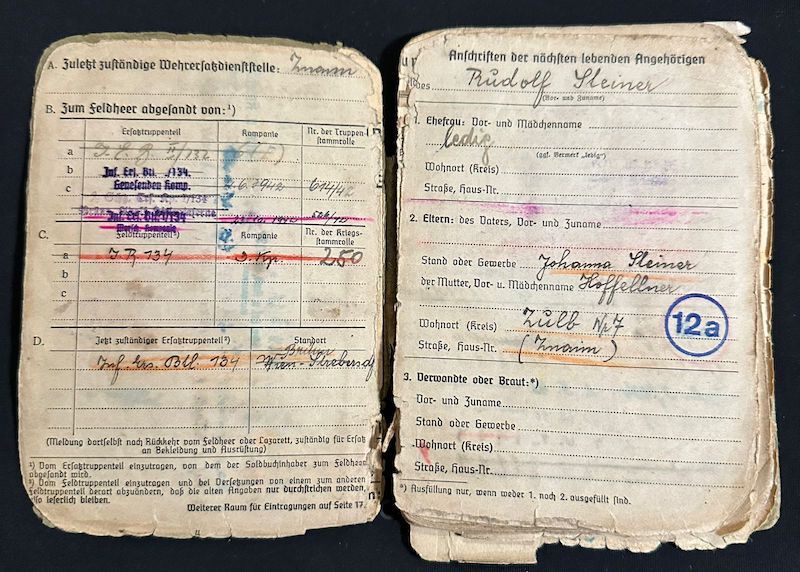 A. Zuletzt zuständige Wehrersatzdienststelle: Znaim
B. Zum Feldheer abgesandt von:¹)
Ersatztruppenteil Kompanie Nr. der Truppenstammrolle
a J.E.R. II/132
b Inf. Ers. Btl. /134.
Genesenden Komp.
c 2.6.1942 614/42
Inf. Ers. Btl. /134
Marsch Kompanie
C. Feldtruppenteil²) Kompanie Nr. der Kriegsstammrolle
a J.R. 134 2 Kp. 250
b
c
D. Jetzt zuständiger Ersatztruppenteil²) Standort
Inf. Ers. Btl. 134 Wien-Strebersdf
(Meldung dortselbst nach Rückkehr vom Feldheer oder Lazarett, zuständig für Ersatz
an Bekleidung und Ausrüstung)
¹) Vom Ersatztruppenteil einzutragen, von dem der Soldbuchinhaber zum Feldheer
abgesandt wird.
²) Vom Feldtruppenteil einzutragen und bei Versetzungen von einem zum anderen
Feldtruppenteil derart abzuändern, daß die alten Angaben nur durchstrichen werden,
also leserlich bleiben.
Weiterer Raum für Eintragungen auf Seite 17.
Anschriften der nächsten lebenden Angehörigen
des Rudolf Steiner
(Vor- und Zuname)
1. Ehefrau: Vor- und Mädchenname
ledig
(ggf. Vermerk „ledig“)
Wohnort (Kreis)
Straße, Haus-Nr.
2. Eltern: des Vaters, Vor- und Zuname
Stand oder Gewerbe Johanna Steiner
der Mutter, Vor- u. Mädchenname Hoffellner
Wohnort (Kreis) Zulb Nr 7
12a
Straße, Haus-Nr. (Znaim)
3. Verwandte oder Braut:*)
Vor- und Zuname
Stand oder Gewerbe
Wohnort (Kreis)
Straße, Haus-Nr.
*) Ausfüllung nur, wenn weder 1. noch 2. ausgefüllt sind.